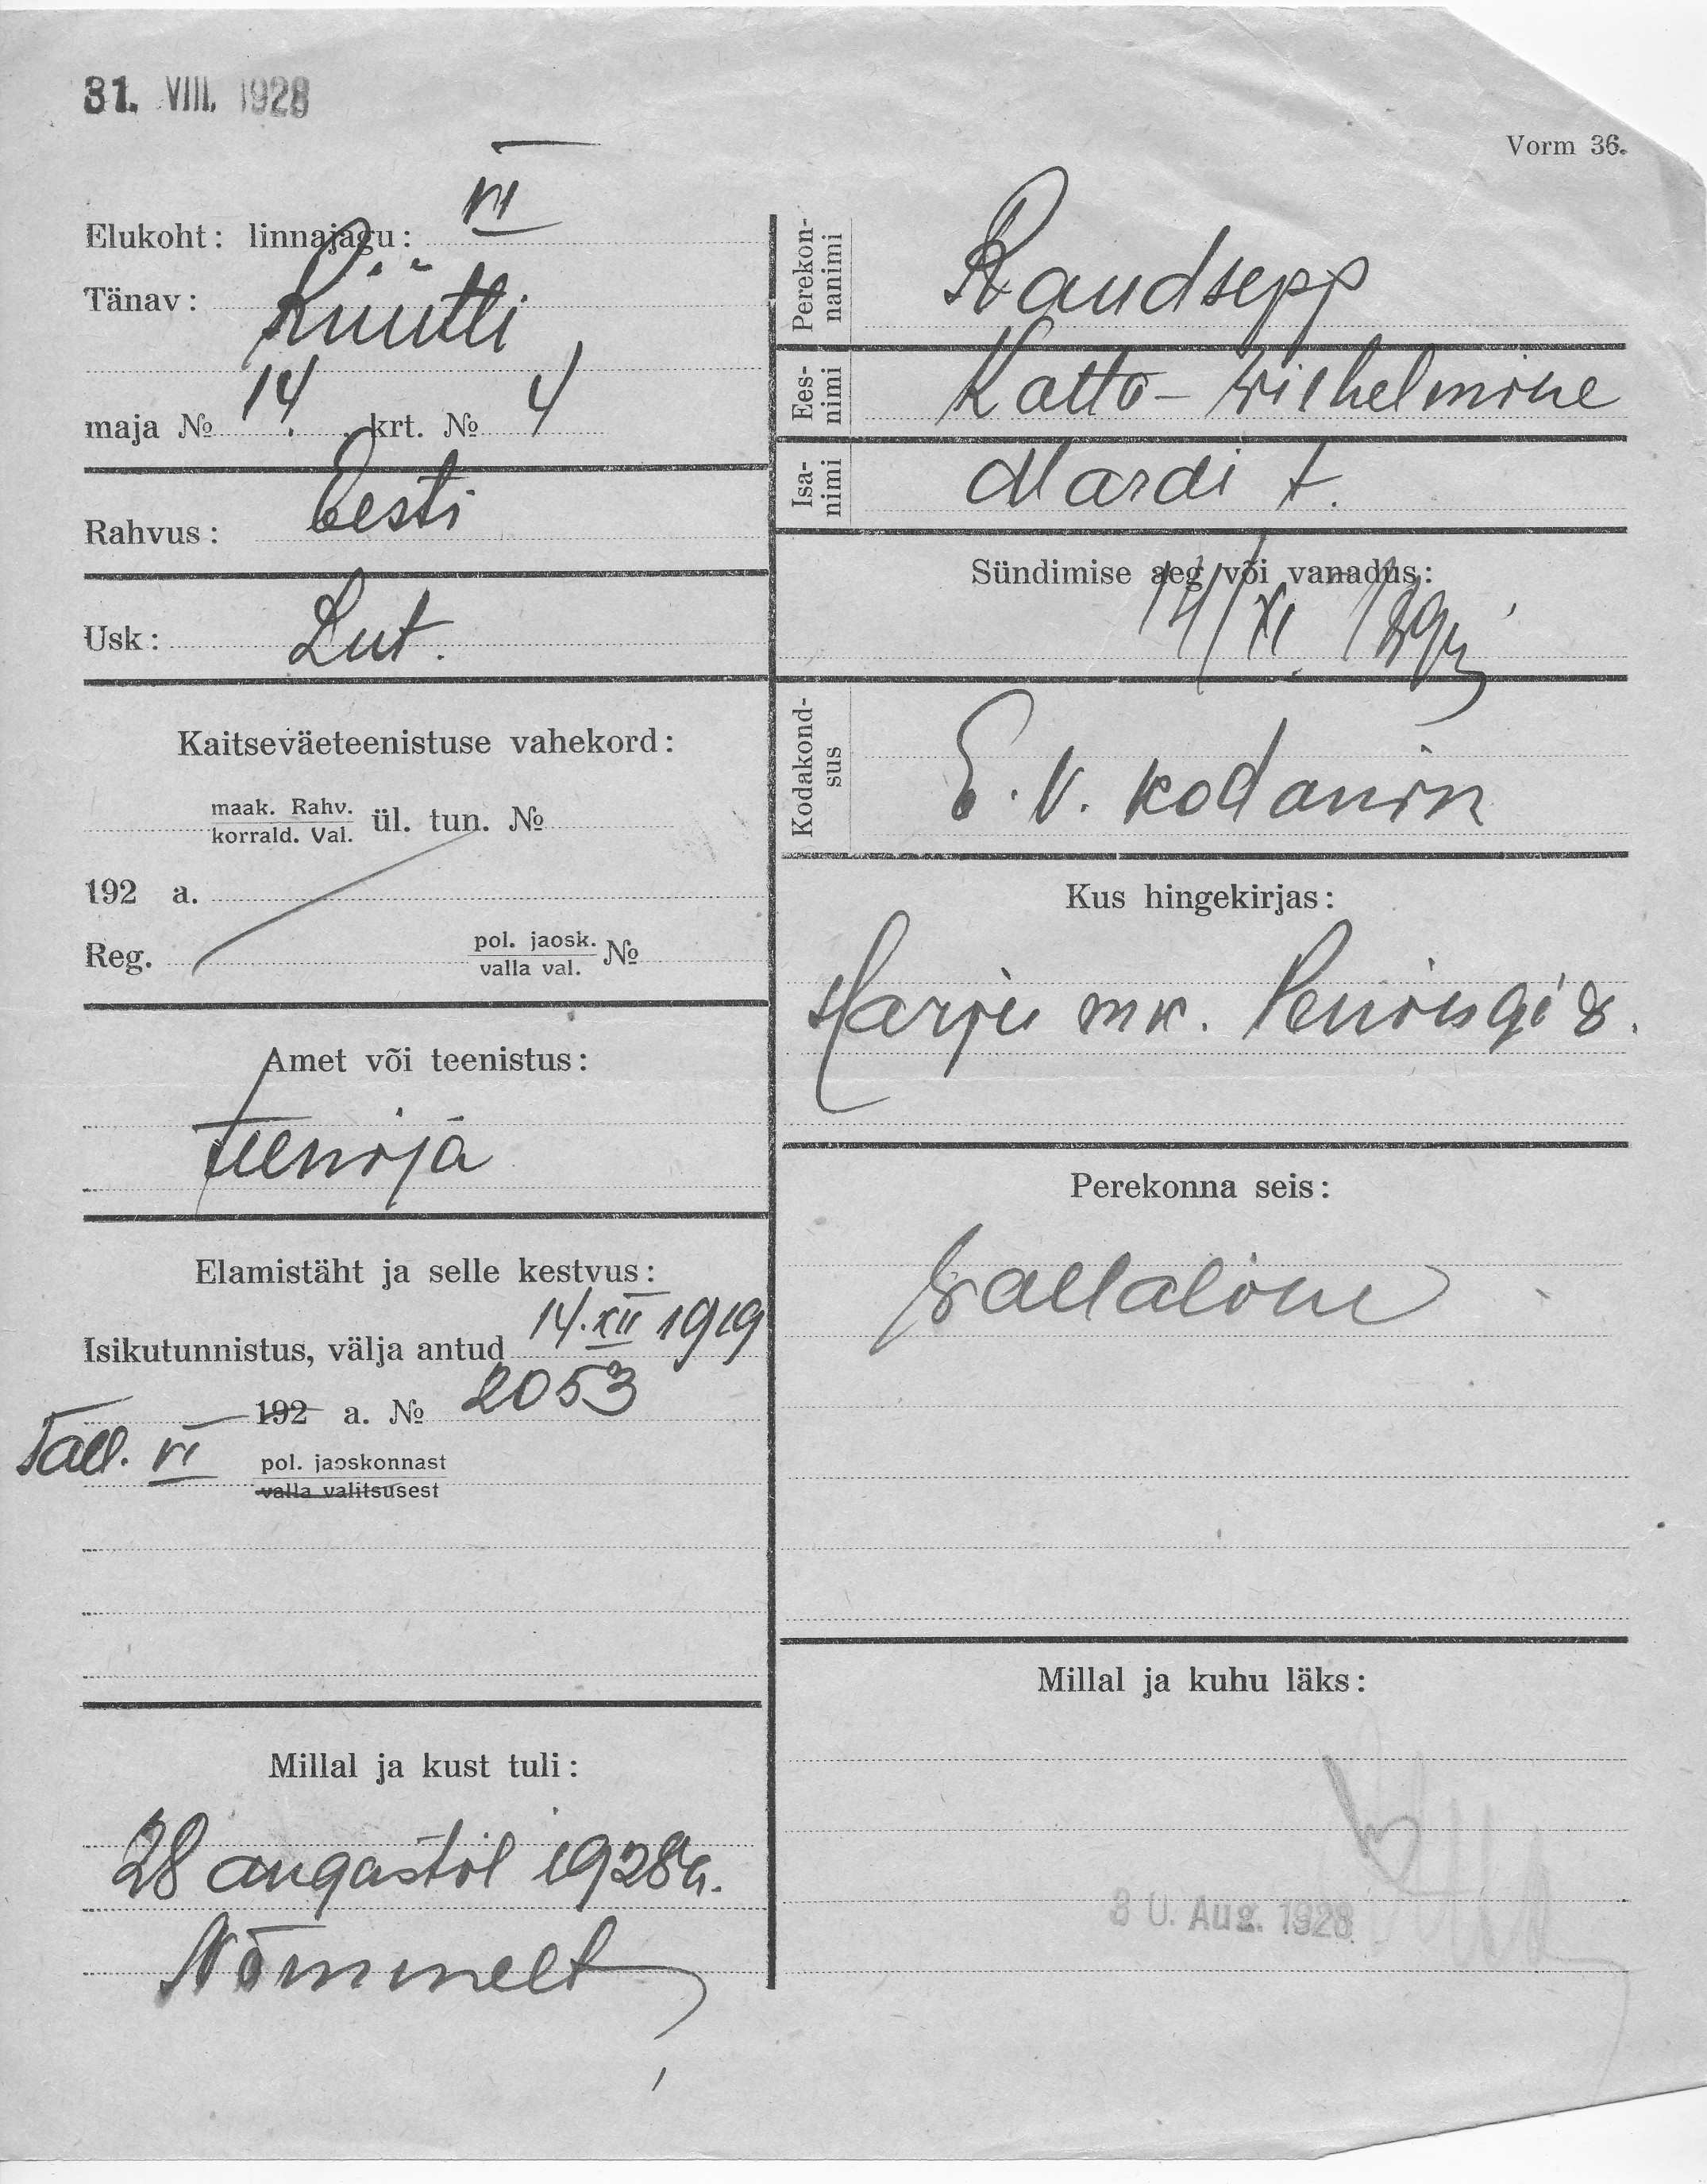 31. VIII. 1928
Vorm 36.
Elukoht: linnajagu: VI
Tänav: Rüütli
maja № 14. krt. № 4
Rahvus: Eesti
Usk: Lut.
Kaitseväeteenistuse vahekord:
maak. Rahv.
korrald. Val. ül. tun. №
192 a.
Reg. pol. jaosk.
valla val. №
Amet või teenistus:
Teenija
Elamistäht ja selle kestvus:
Isikutunnistus, välja antud 14. XII 1919
192 a. № 2053
Tall. VI pol. jaoskonnast
valla valitsusest
Millal ja kust tuli:
28 augastil 1928 a.
Nõmmelt
Perekonnanimi Raudsepp
Eesnimi Katto-Wilhelmine
Isanimi Mardi t.
Sündimise aeg või vanadus:
14/XI
Kodakondsus E. V. kodanik
Kus hingekirjas:
Harju mk. Peningi v.
Perekonna seis:
Vallaline
Millal ja kuhu läks:
30. Aug. 1928